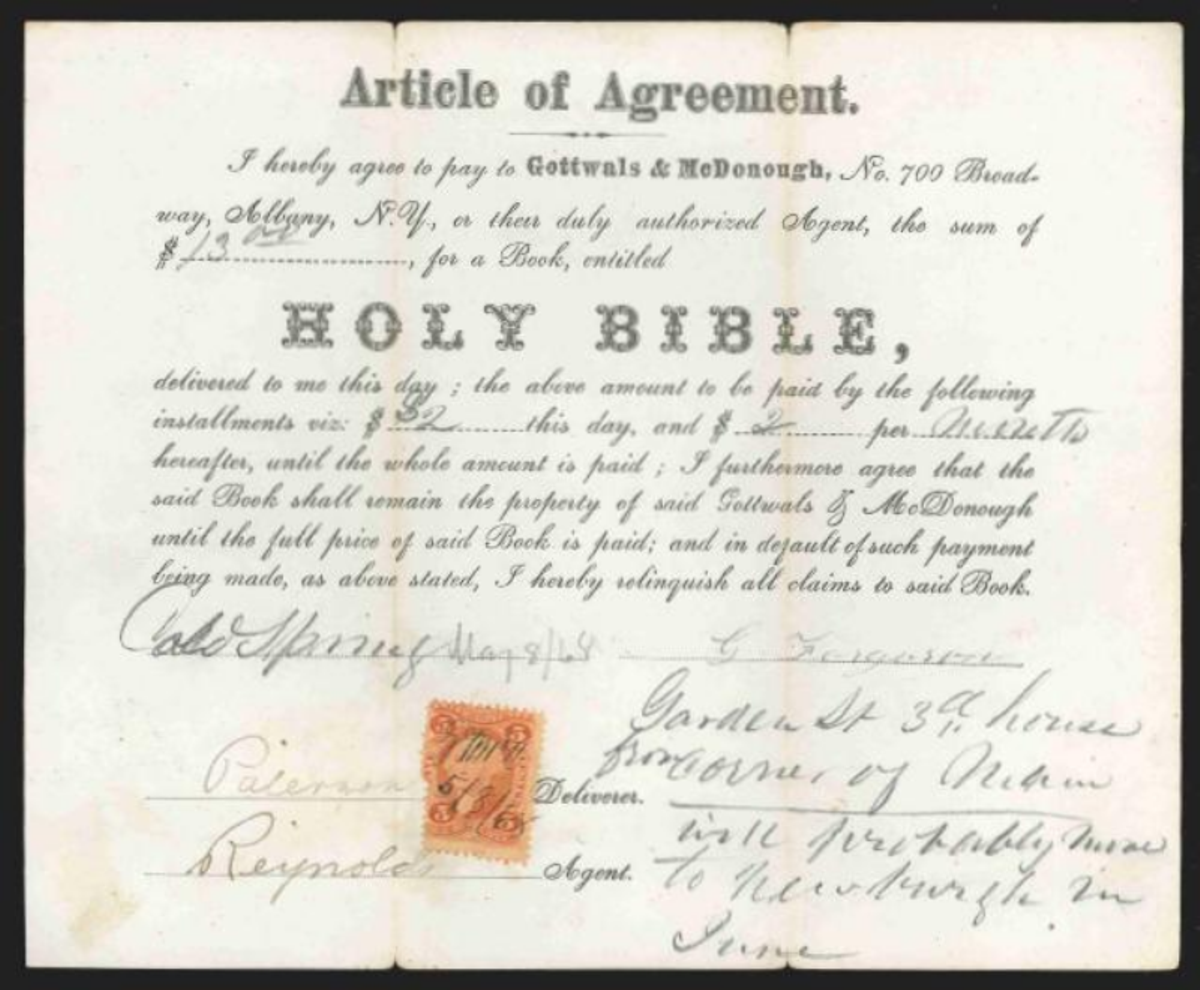 Article of Agreement.
I hereby agree to pay to Gottwals & McDonough, No. 700 Broad-
way, Albany, N.Y., or their duly authorized Agent, the sum of
$ 13 00, for a Book, entitled
HOLY BIBLE,
delivered to me this day ; the above amount to be paid by the following
installments viz: $ $2 this day, and $ 2 per Month
hereafter, until the whole amount is paid ; I furthermore agree that the
said Book shall remain the property of said Gottwals & McDonough
until the full price of said Book is paid; and in default of such payment
being made, as above stated, I hereby relinquish all claims to said Book.
Cold Spring May 8/68 G Ferguson
Garden St 3d house
from corner of Main
Paterson Deliverer.
will probably move
Reynolds Agent.
to Newburgh in
June
5 5
5/8/68
5 5